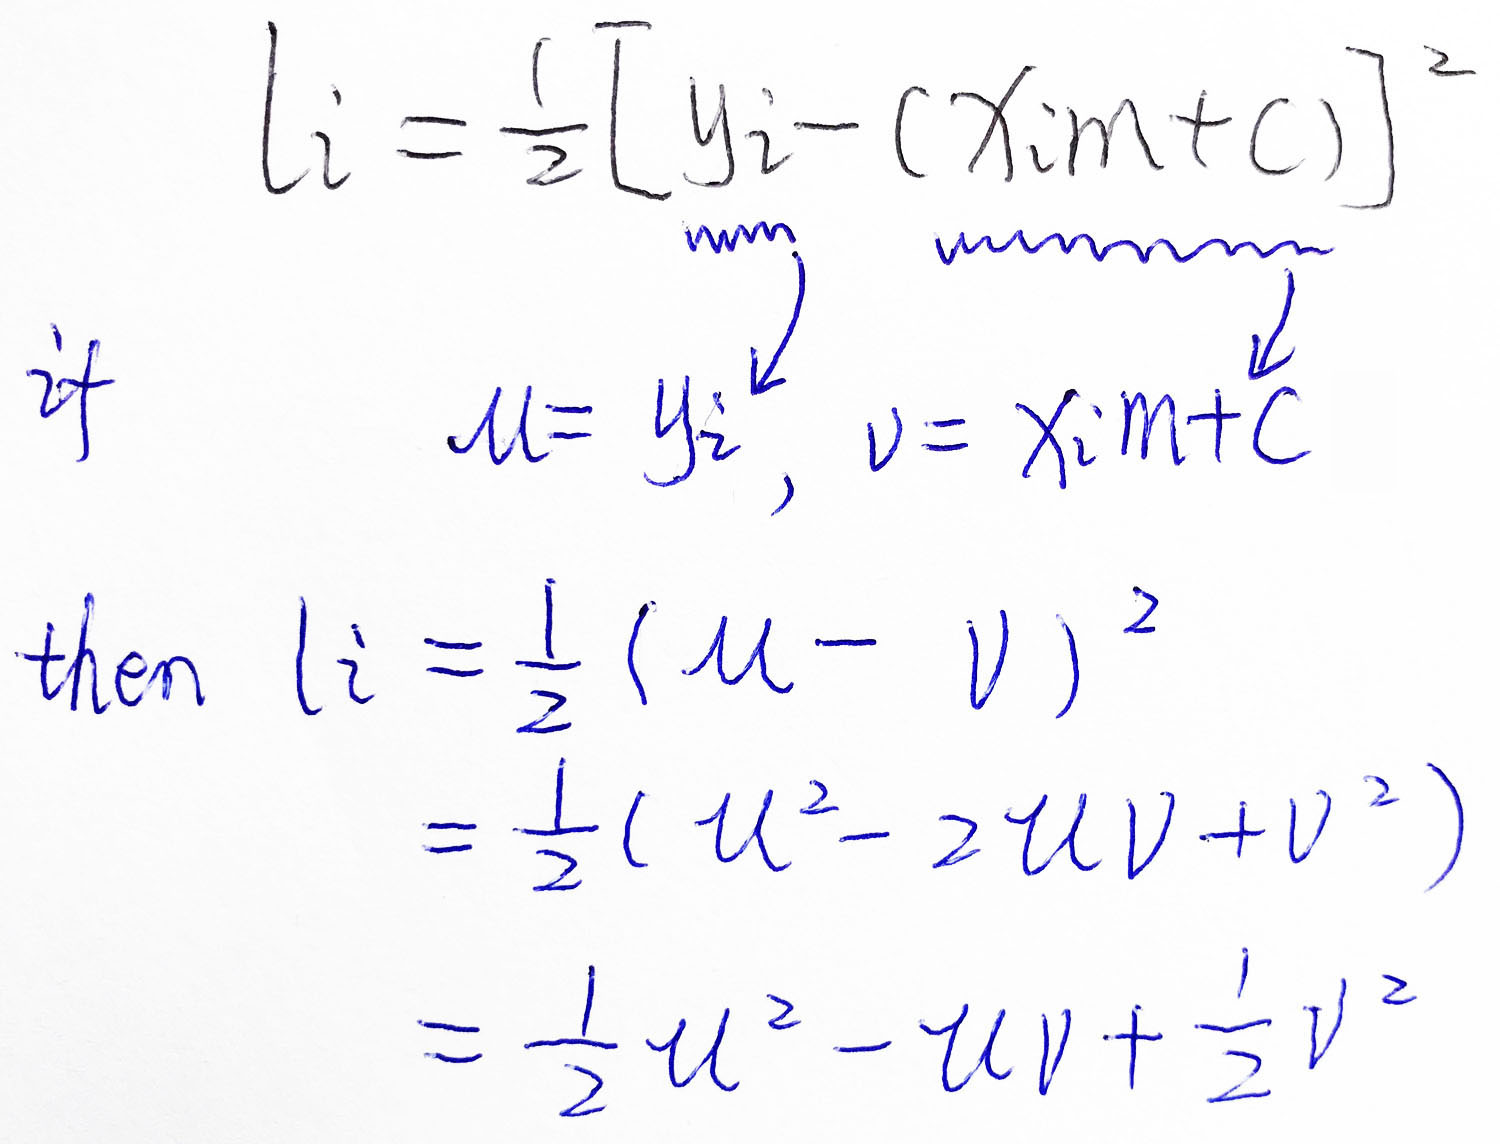 li = 1/2 [yi - (xim + c)]²
if u = yi, v = xim + c
then li = 1/2 (u - v)²
= 1/2 (u² - 2uv + v²)
= 1/2 u² - uv + 1/2 v²